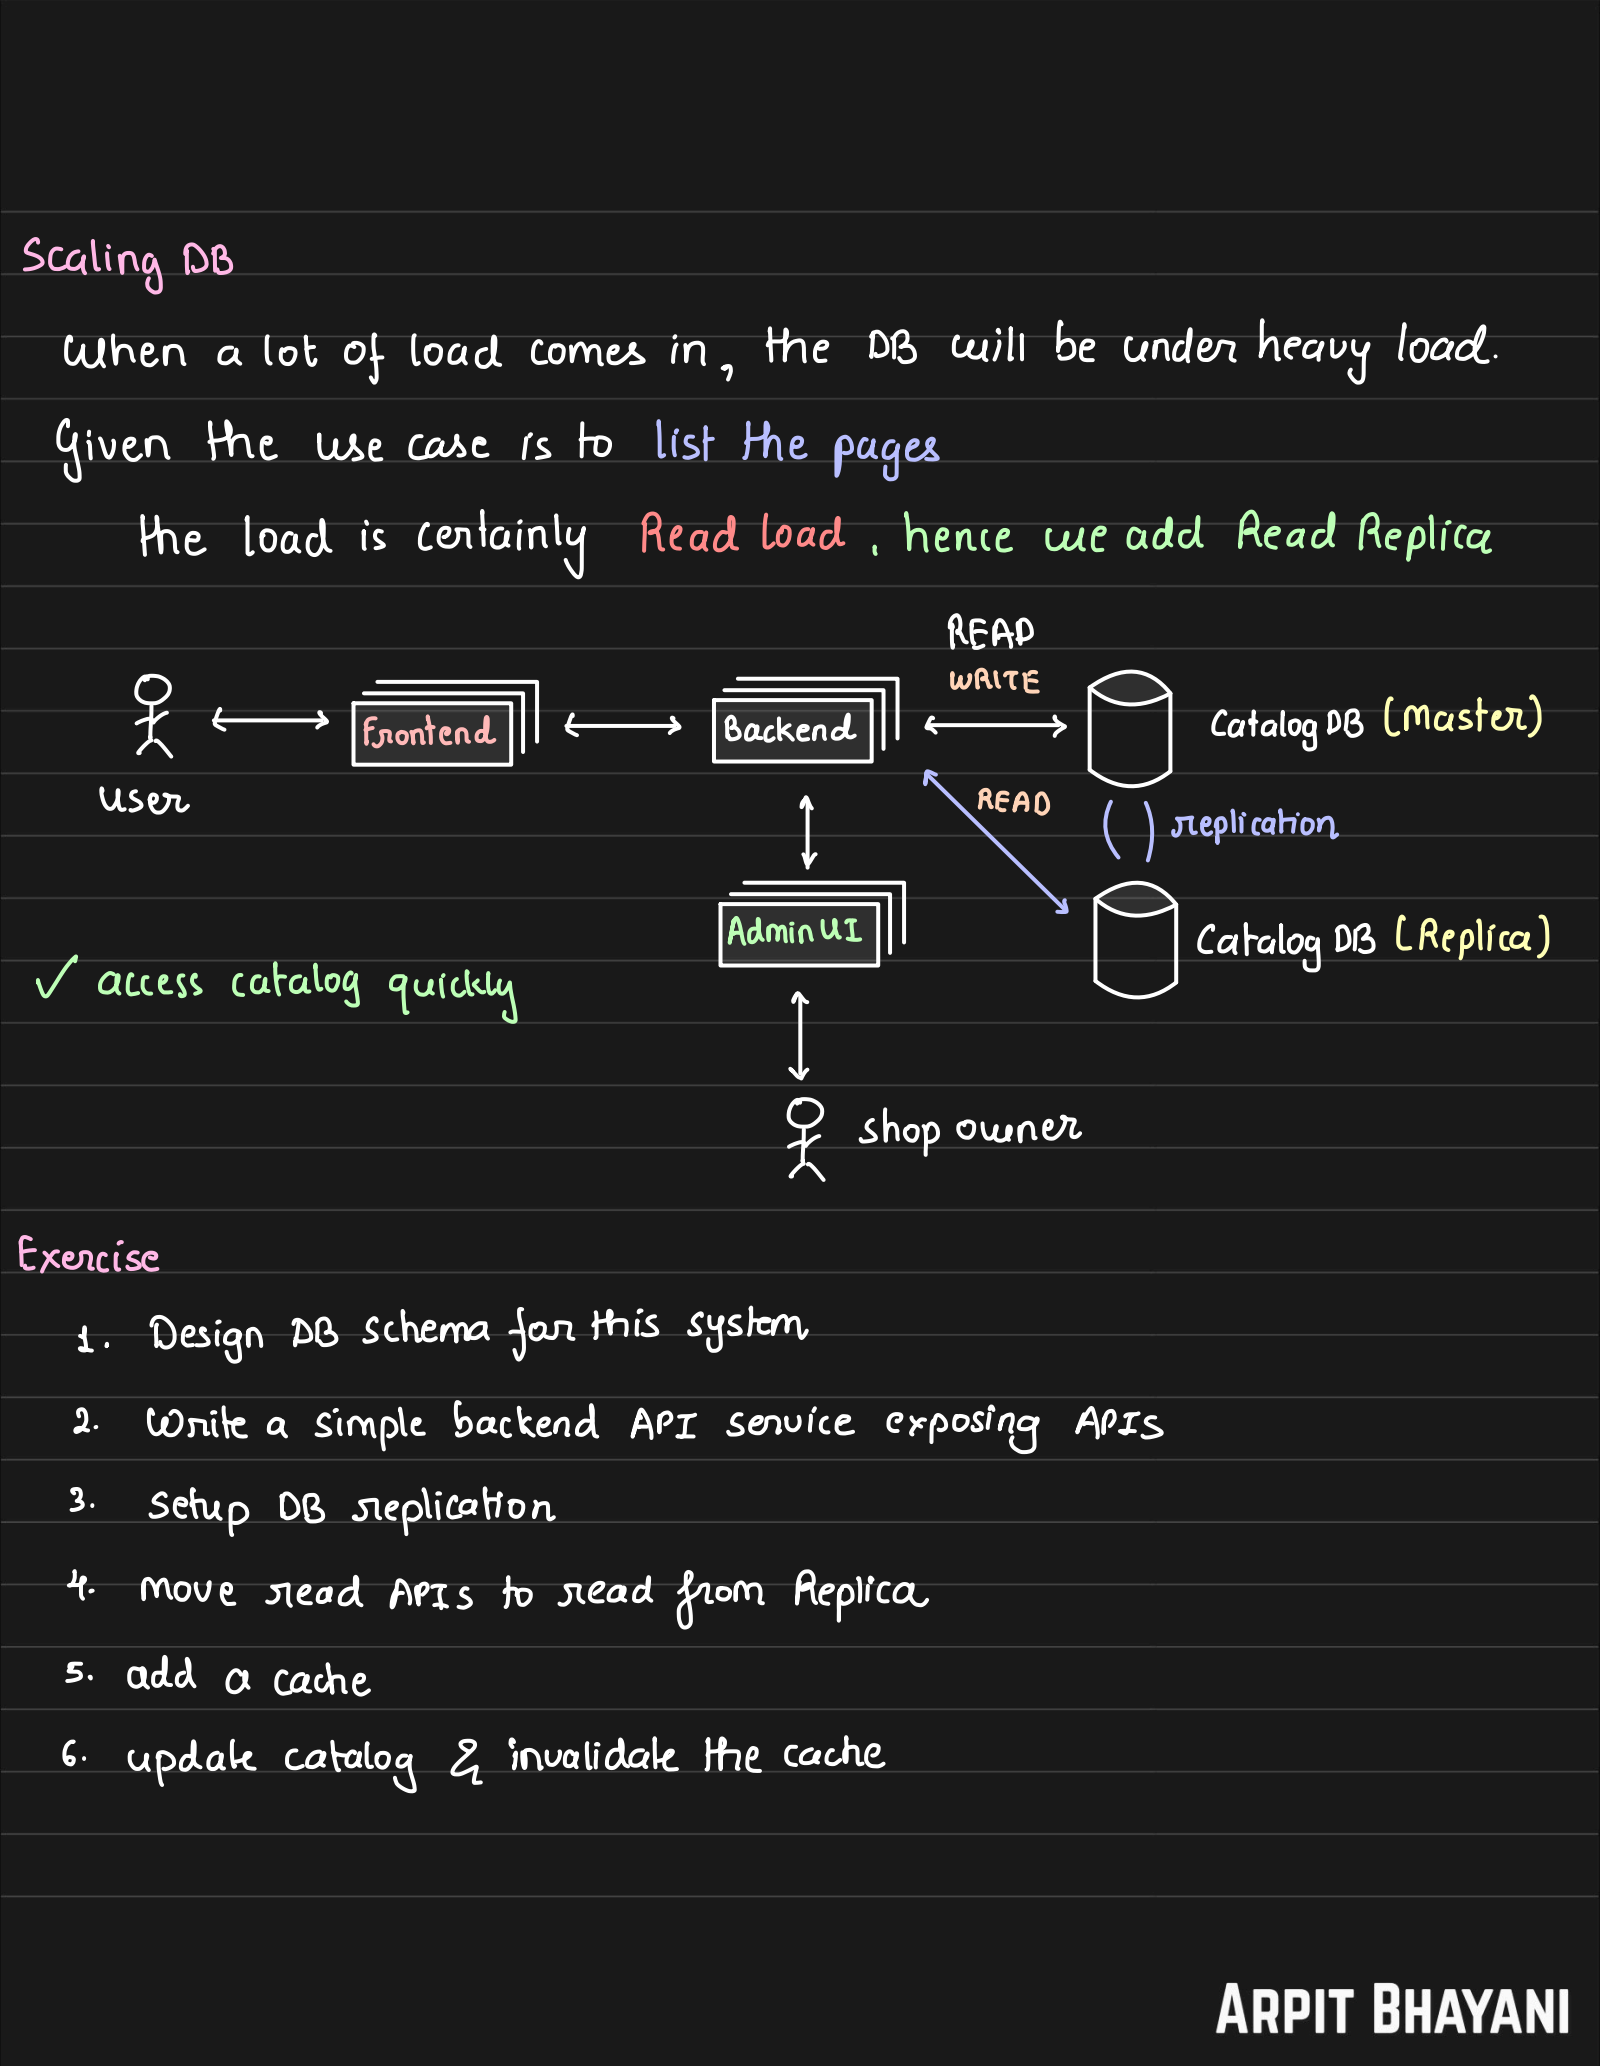 Scaling DB
When a lot of load comes in, the DB will be under heavy load.
Given the use case is to list the pages
the load is certainly Read load, hence we add Read Replica
READ
WRITE
Frontend
Backend
Catalog DB (Master)
user
READ
replication
Admin UI
Catalog DB (Replica)
✓ access catalog quickly
shop owner
Exercise
1. Design DB schema for this system
2. Write a simple backend API service exposing APIs
3. Setup DB replication
4. Move read APIs to read from Replica
5. add a cache
6. update catalog & invalidate the cache
ARPIT BHAYANI